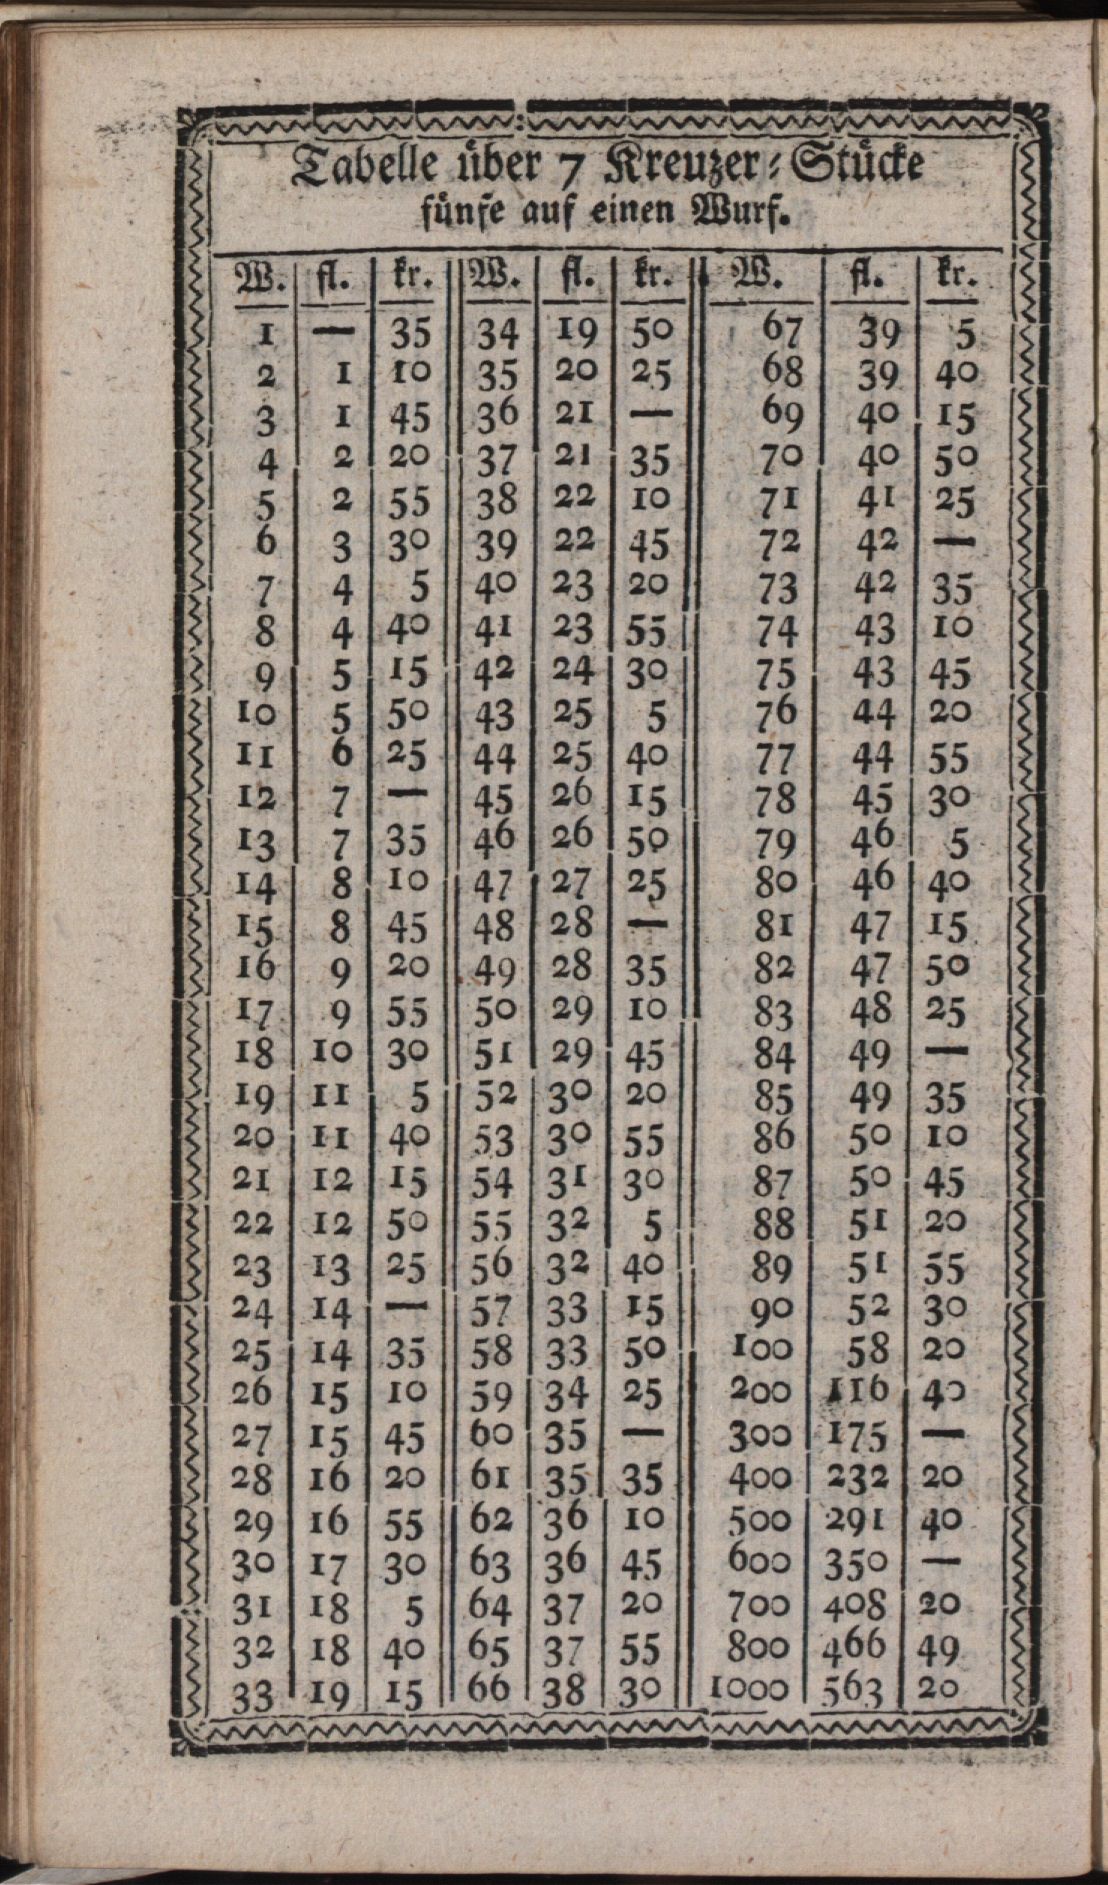 Tabelle über 7 Kreuzer-Stücke
fünfe auf einen Wurf.
W. fl. kr. W. fl. kr. W. fl. kr.
1 — 35 34 19 50 67 39 5
2 1 10 35 20 25 68 39 40
3 1 45 36 21 — 69 40 15
4 2 20 37 21 35 70 40 50
5 2 55 38 22 10 71 41 25
6 3 30 39 22 45 72 42 —
7 4 5 40 23 20 73 42 35
8 4 40 41 23 55 74 43 10
9 5 15 42 24 30 75 43 45
10 5 50 43 25 5 76 44 20
11 6 25 44 25 40 77 44 55
12 7 — 45 26 15 78 45 30
13 7 35 46 26 50 79 46 5
14 8 10 47 27 25 80 46 40
15 8 45 48 28 — 81 47 15
16 9 20 49 28 35 82 47 50
17 9 55 50 29 10 83 48 25
18 10 30 51 29 45 84 49 —
19 11 5 52 30 20 85 49 35
20 11 40 53 30 55 86 50 10
21 12 15 54 31 30 87 50 45
22 12 50 55 32 5 88 51 20
23 13 25 56 32 40 89 51 55
24 14 — 57 33 15 90 52 30
25 14 35 58 33 50 100 58 20
26 15 10 59 34 25 200 116 40
27 15 45 60 35 — 300 175 —
28 16 20 61 35 35 400 232 20
29 16 55 62 36 10 500 291 40
30 17 30 63 36 45 600 350 —
31 18 5 64 37 20 700 408 20
32 18 40 65 37 55 800 466 49
33 19 15 66 38 30 1000 563 20